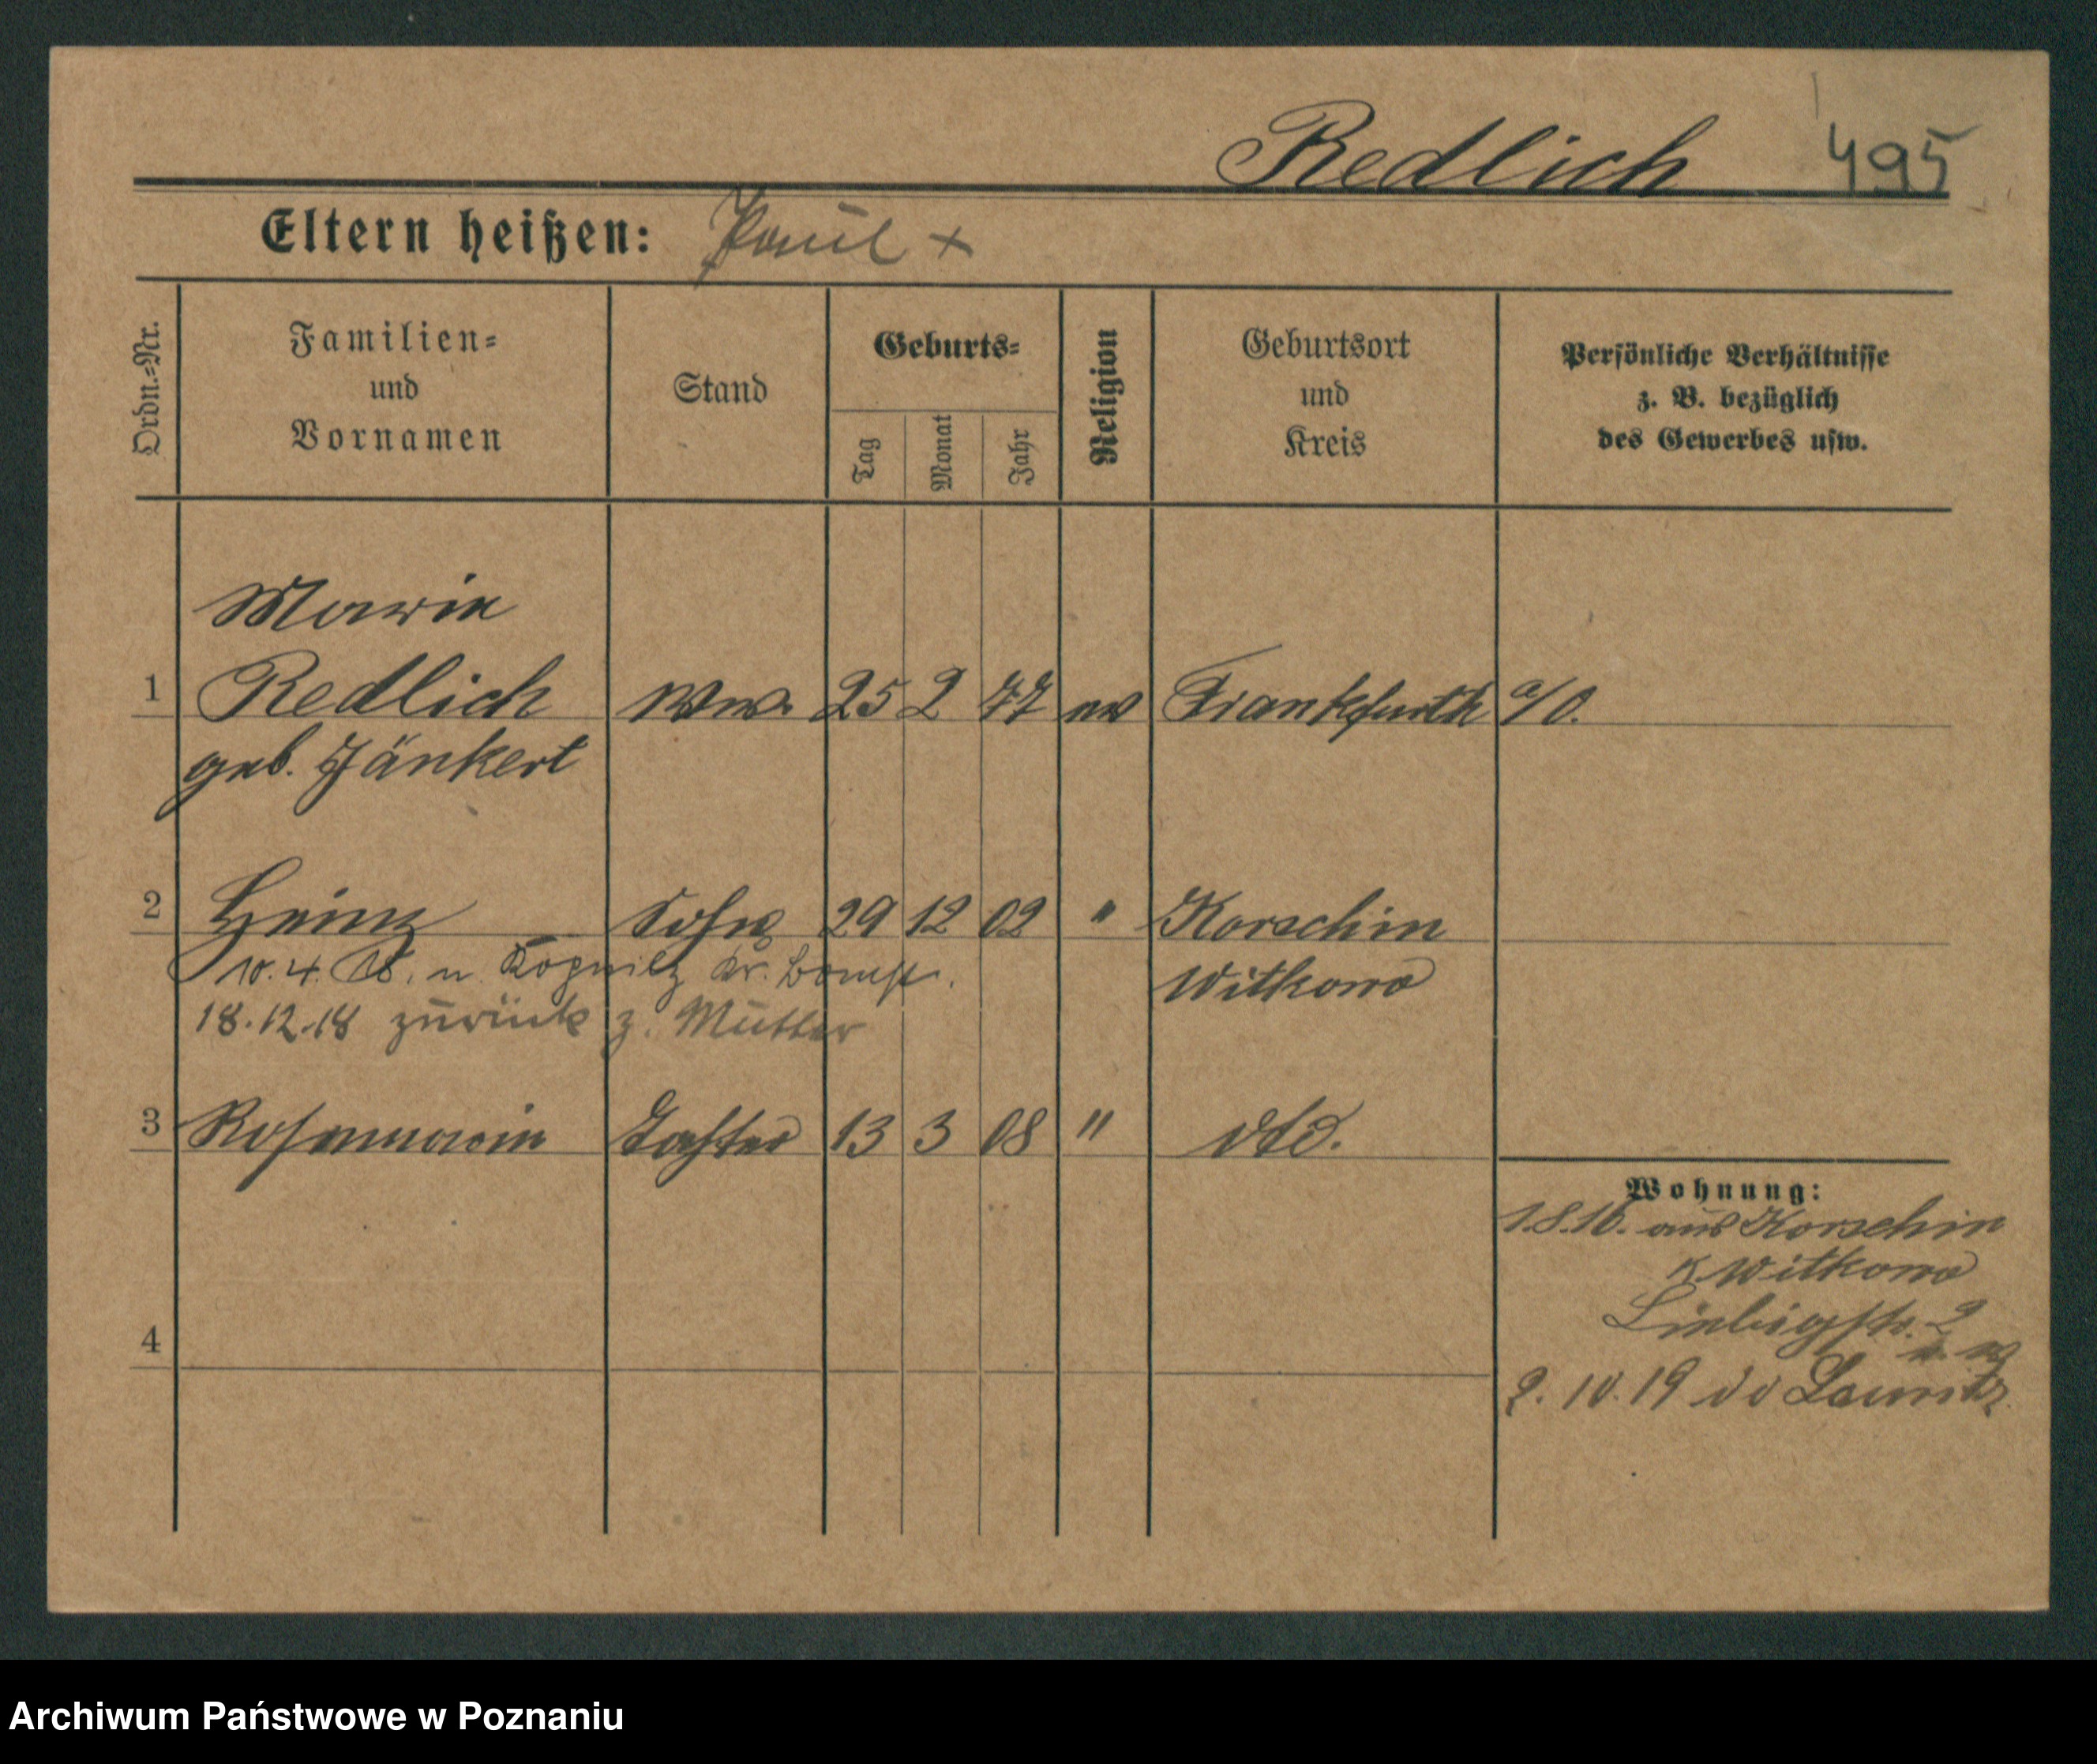 Redlich 495
Eltern heißen: Paul +
Ordn.-Nr.
Familien-
und
Vornamen
Stand
Geburts-
Tag
Monat
Jahr
Religion
Geburtsort
und
Kreis
Persönliche Verhältnisse
z. B. bezüglich
des Gewerbes usw.
Marie
1 Redlich Ww. 25 2 77 ev Frankfurth a/O.
geb. Jänkert
2 Heinz Sohn 29 12 02 " Korschin
10. 4. 18. n. Köpnitz Kr. Bomst.
Witkowo
18.12.18 zurück z. Mutter
3 Rosemarie Tochter 13 3 08 " dto.
Wohnung:
1.8.16. aus Korschin
K. Witkowo
Liebigstr. 2
4
2. 10. 19
Archiwum Państwowe w Poznaniu